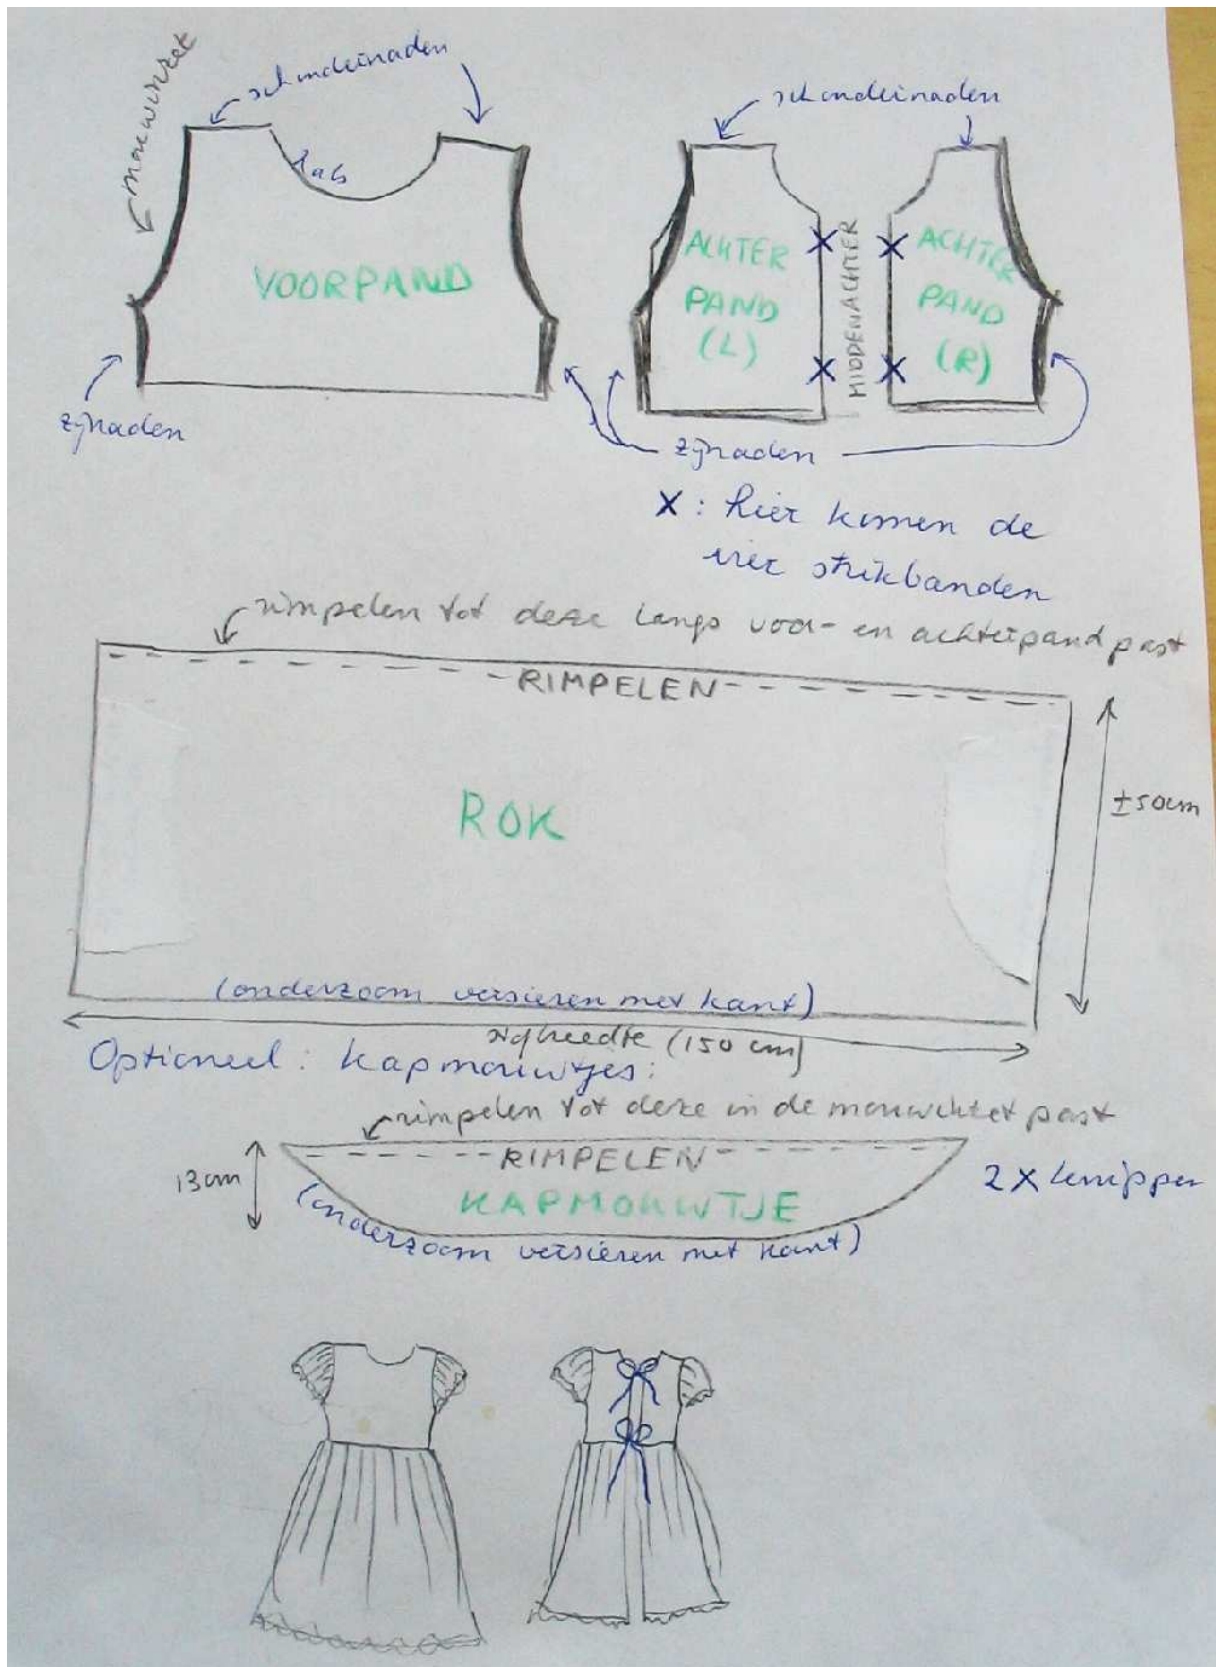 mouwinzet
schoudernaden
hals
VOORPAND
zijnaden
schoudernaden
ACHTER
PAND
(L)
MIDDENACHTER
ACHTER
PAND
(R)
zijnaden
X: hier komen de
vier strikbanden
rimpelen tot deze langs voor- en achterpand past
RIMPELEN
ROK
±50cm
(onderzoom versieren met kant)
(150 cm)
Optioneel: kapmouwtjes:
rimpelen tot deze in de mouwinzet past
RIMPELEN
13cm
KAPMOUWTJE
2X knippen
(onderzoom versieren met kant)